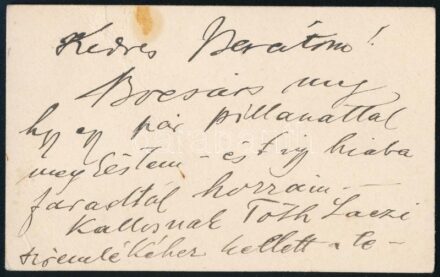 Kedves Barátom!
Bocsáss meg
hgy egy pár pillanattal
meg késtem - és így hiába
fáradtál hozzám -
Kallósnak Tóth Laczi
síremlékéhez kellett a te-